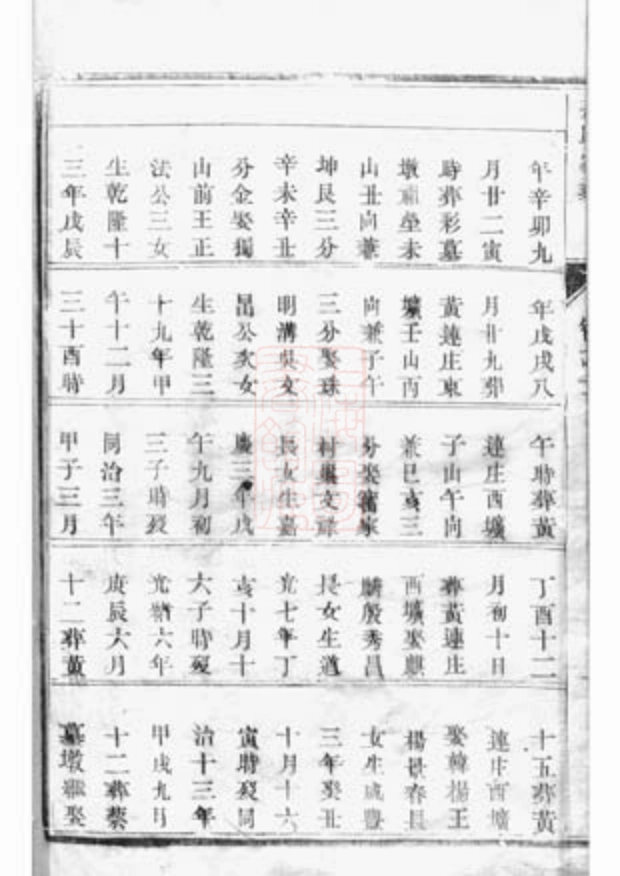 年辛卯九
月廿二寅
時葬彩墓
墩祖塋未
山丑向兼
坤艮三分
辛未辛丑
分金娶獨
山前王正
法公三女
生乾隆十
三年戊辰
年戊戌八
月廿九葬
黃連庄東
壙壬山丙
向兼子午
三分娶珠
明溝吳文
昌公次女
生乾隆三
十九年甲
午十二月
三十酉時
午時葬黃
連庄西壙
子山午向
兼巳亥三
分娶富家
村巢文祥
長女生嘉
慶三年戊
午九月初
三子時歿
同治三年
甲子三月
丁酉十二
月初十日
葬黃連庄
西壙娶麒
麟殷秀昌
長女生道
光七年丁
亥十月十
六子時歿
光緒六年
庚辰六月
十二葬黃
十五葬黃
連庄西壙
娶韓楊王
楊景春長
女生咸豐
三年癸丑
十月十六
寅時歿同
治十三年
甲戌九月
十二葬蔡
墓墩繼娶